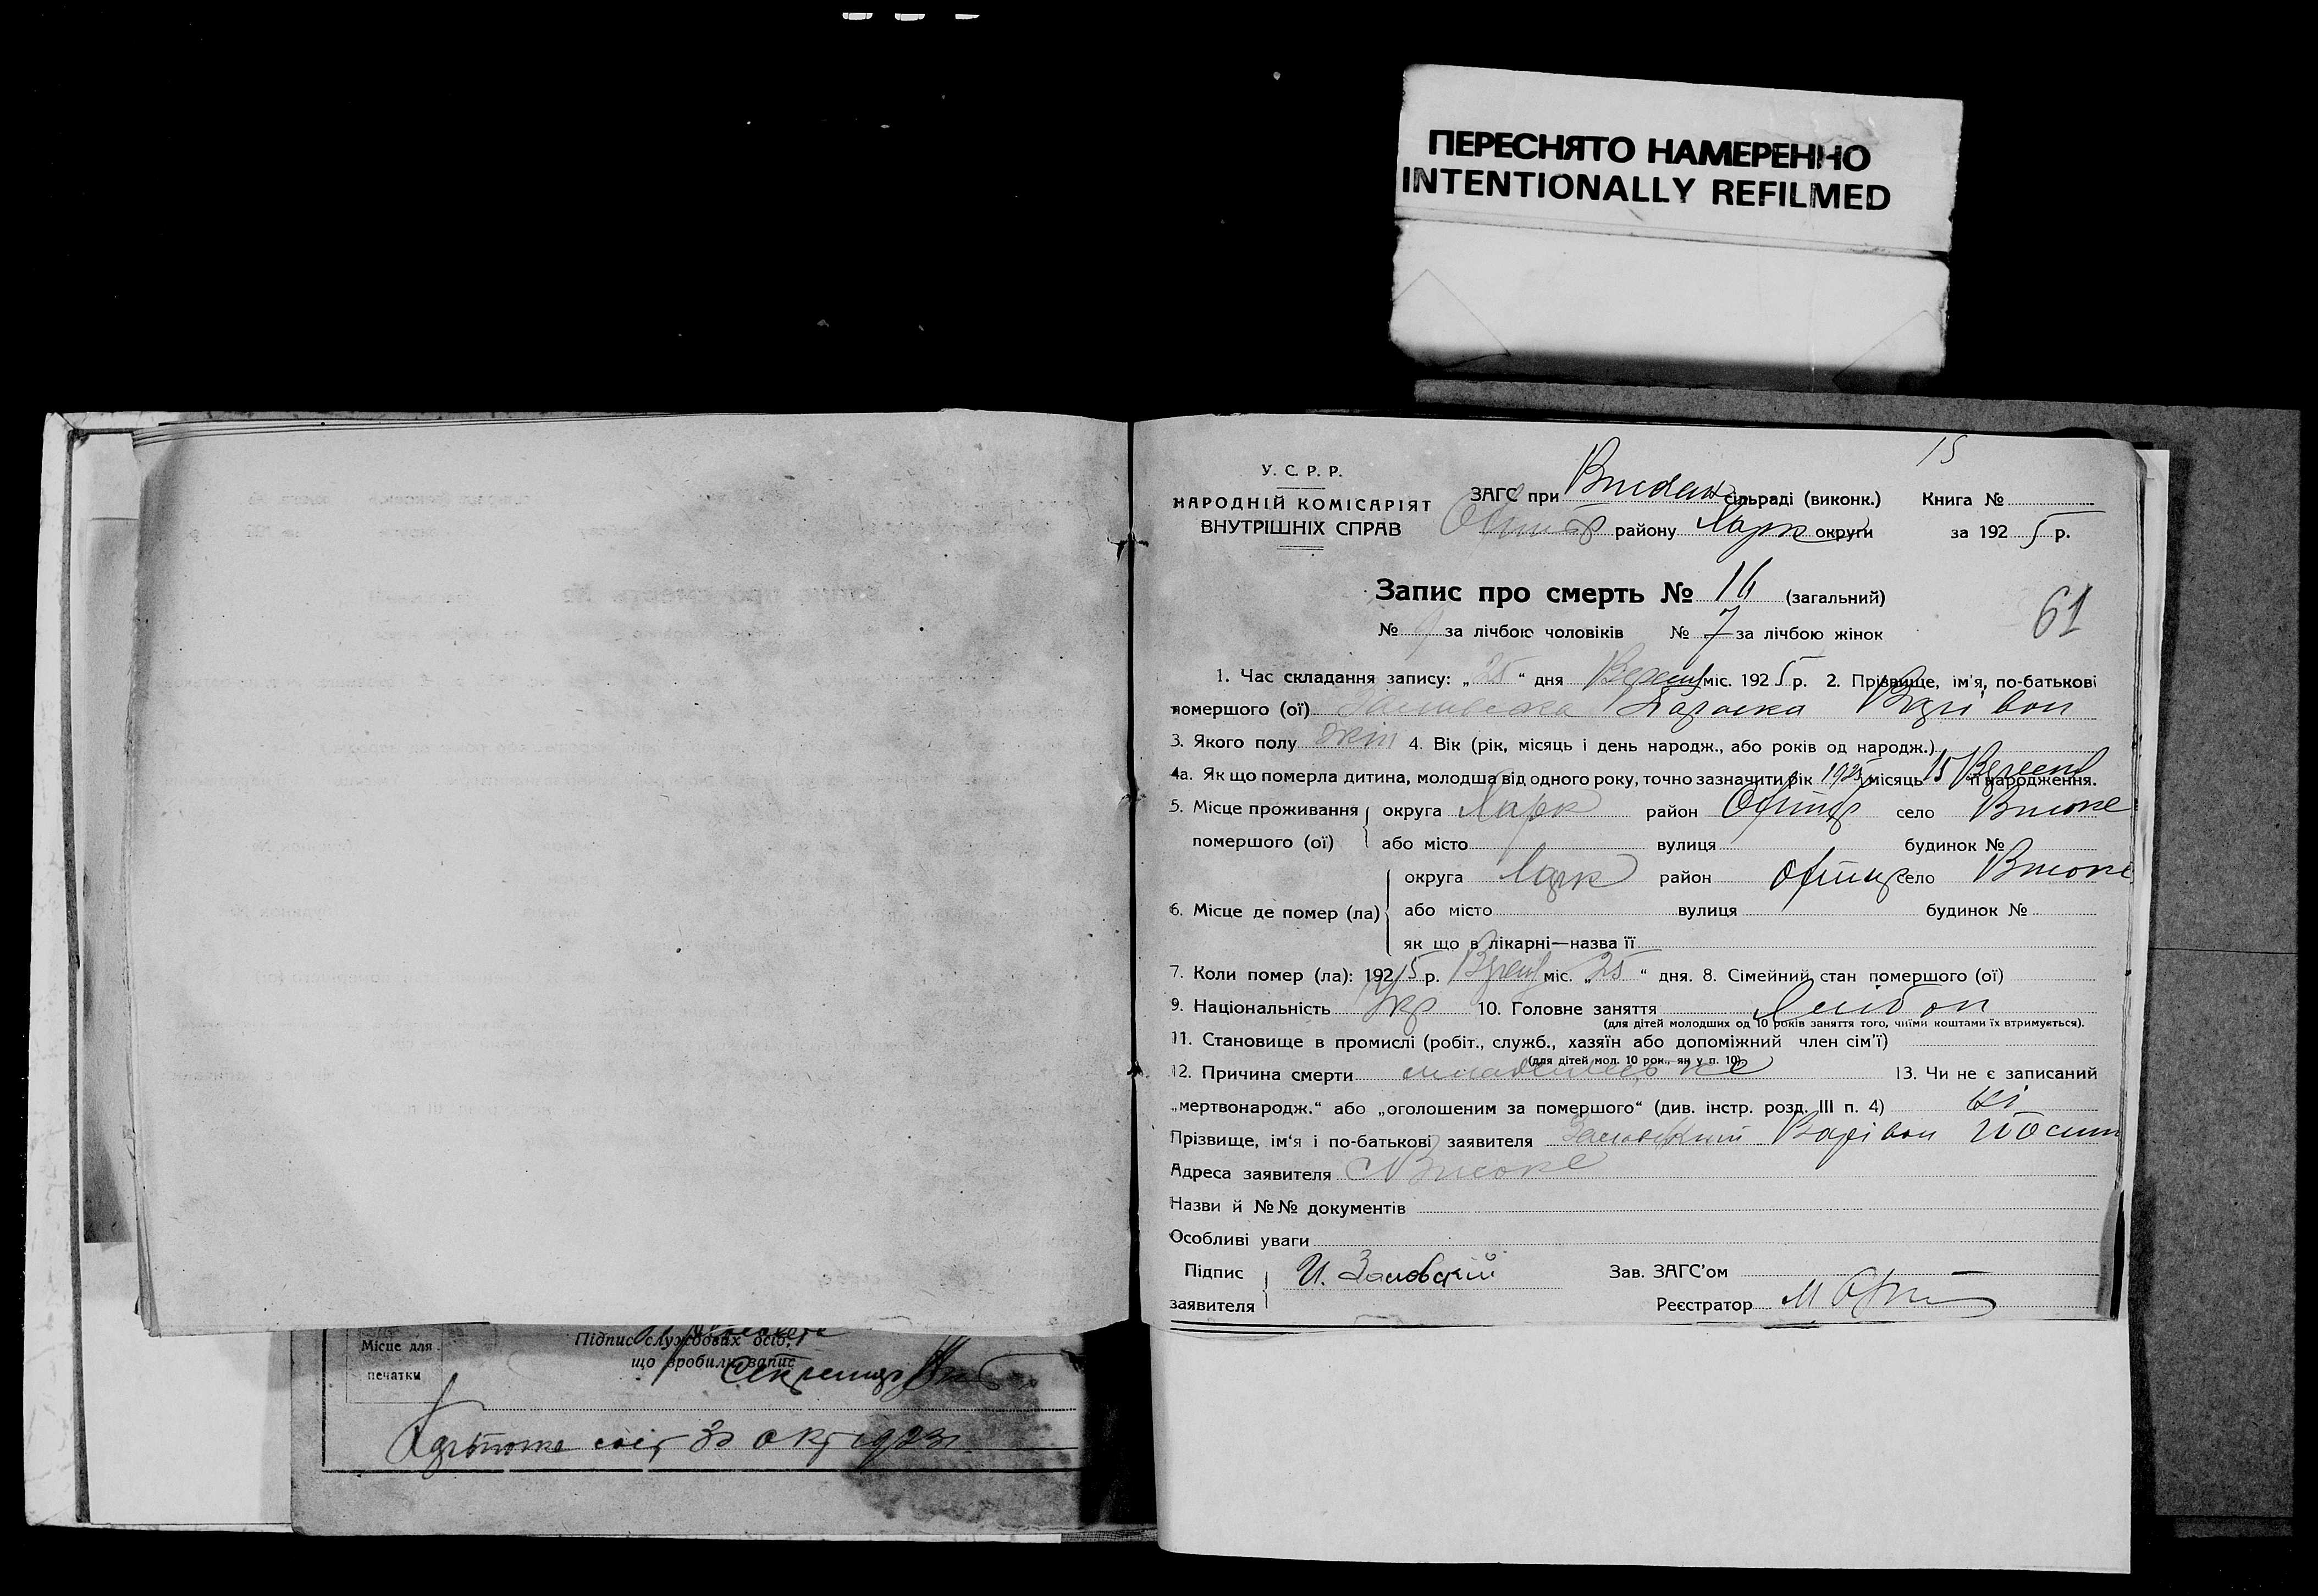 ПЕРЕСНЯТО НАМЕРЕННО
INTENTIONALLY REFILMED
15
У. С. Р. Р.
НАРОДНІЙ КОМІСАРІЯТ
ВНУТРІШНІХ СПРАВ
ЗАГС при сільраді (виконк.) Книга №
району Харк округи за 1925 р.
Запис про смерть № 16 (загальний)
61
№ 9 за лічбою чоловіків № 7 за лічбою жінок
1. Час складання запису: „25“ дня Верес міс. 1925 р. 2. Прізвище, ім'я, по-батькові
помершого (ої) Параска Варівон
3. Якого полу жін 4. Вік (рік, місяць і день народж., або років од народж.)
4а. Як що померла дитина, молодша від одного року, точно зазначити рік 1925 місяць 15 Вересня й народження.
5. Місце проживання помершого (ої) округа Харк район Охтир село Високе
або місто вулиця будинок №
6. Місце де помер (ла) округа Харк район Охтир село Високе
або місто вулиця будинок №
як що в лікарні—назва її
7. Коли помер (ла): 1925 р. Верес міс. „25“ дня. 8. Сімейний стан помершого (ої)
9. Національність Укр 10. Головне заняття Хлібоп
(для дітей молодших од 10 років заняття того, чиїми коштами їх втримується).
11. Становище в промислі (робіт., служб., хазяїн або допоміжний член сім'ї)
(для дітей мол. 10 рок., як у п. 10)
12. Причина смерти 13. Чи не є записаний
„мертвонародж.“ або „оголошеним за помершого“ (див. інстр. розд. III п. 4) ні
Прізвище, ім'я і по-батькові заявителя Варівон Йосип
Адреса заявителя С Високе
Назви й №№ документів
Особливі уваги
Підпис заявителя И. Зав. ЗАГС'ом
Реєстратор
Місце для печатки
Підпис службових осіб,
що зробили запис
30 окт 1923